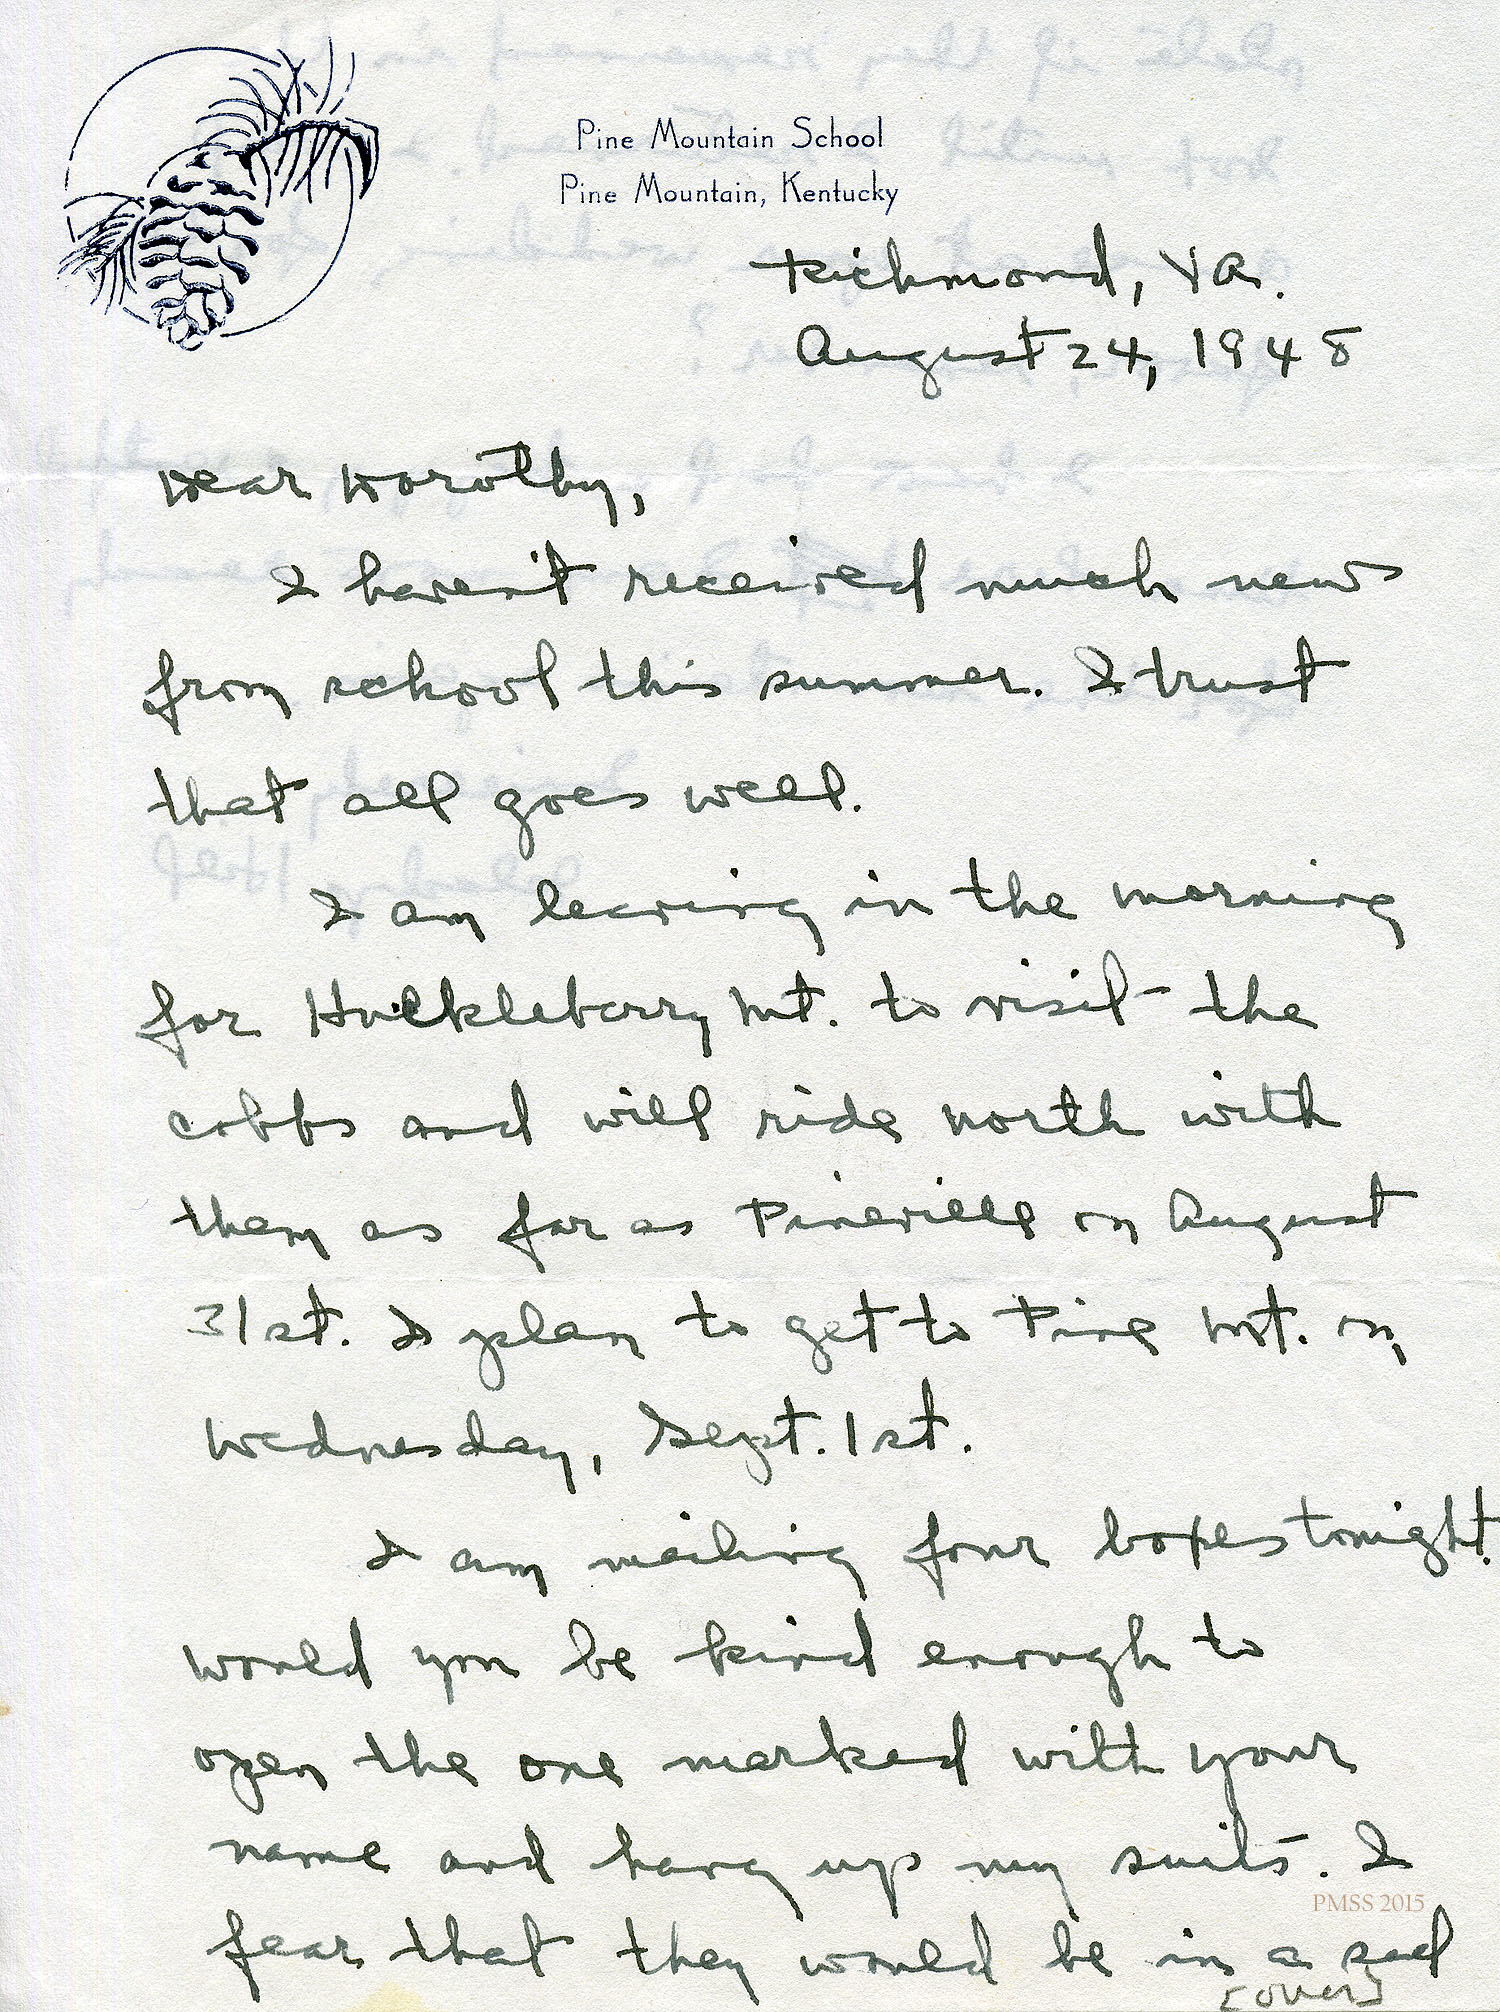 Pine Mountain School
Pine Mountain, Kentucky
Richmond, VA.
August 24, 1948
Dear Dorothy,
I haven't received much news
from school this summer. I trust
that all goes well.
I am leaving in the morning
for Huckleberry Mt. to visit the
Cobbs and will ride north with
them as far as Pineville on August
31st. I plan to get to Pine Mt. on
Wednesday, Sept. 1st.
I am mailing four boxes tonight.
Would you be kind enough to
open the one marked with your
name and hang up my suits. I
PMSS 2015
fear that they would be in a sad
[over]